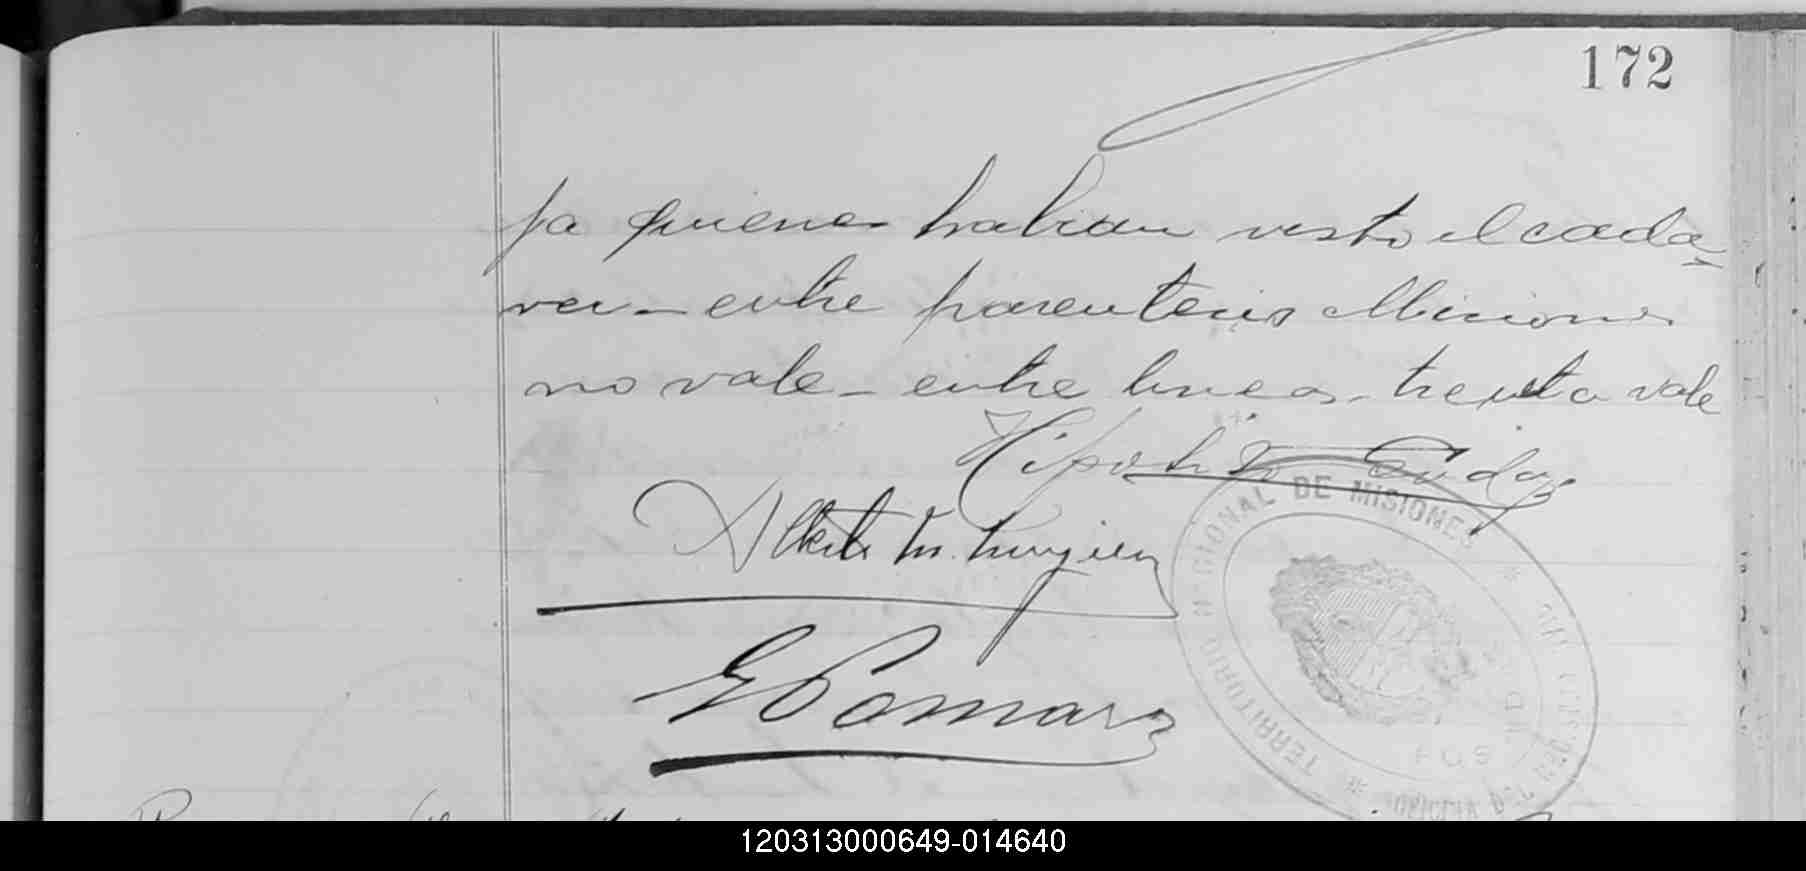 172
ja quienes habian visto el cada
ver - entre parentesis Misiones
no vale - entre lineas - treinta vale
Hipolito
Alberto M.
E Pomar
TERRITORIO NACIONAL DE MISIONES
120313000649-014640